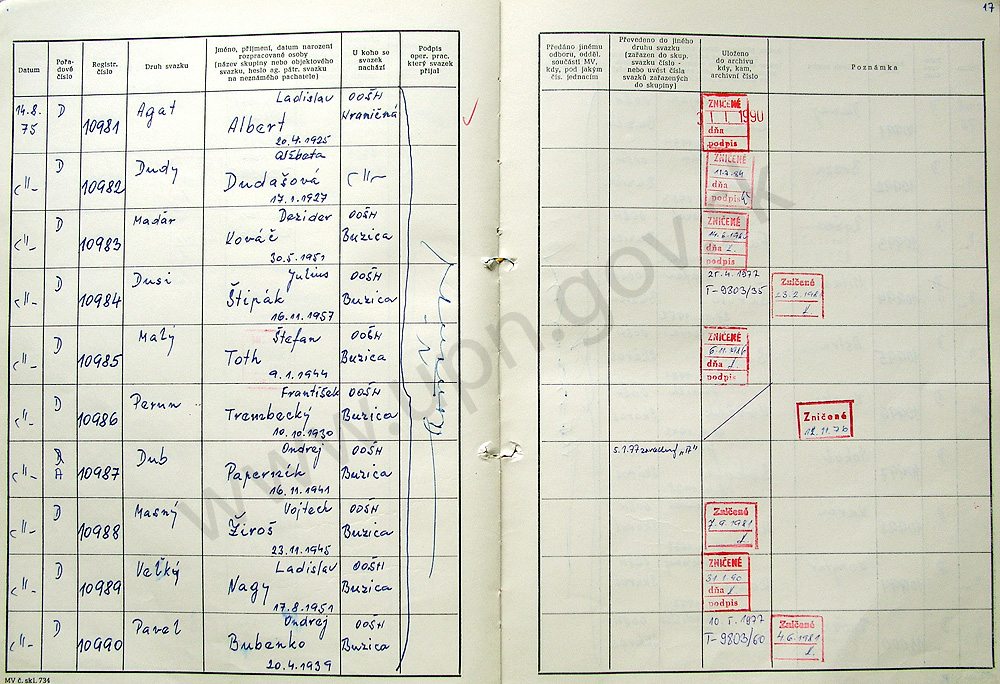 17
Datum
Pořadové číslo
Registr. číslo
Druh svazku
Jméno, příjmení, datum narození
rozpracované osoby
(název skupiny nebo objektového
svazku, heslo ag. pátr. svazku
na neznámého pachatele)
U koho se
svazek
nachází
Podpis
oper. prac.
který svazek
přijal
Předáno jinému
odboru, odděl.
součásti MV,
kdy, pod jakým
čís. jednacím
Převedeno do jiného
druhu svazku
(zařazen do skup.
svazku číslo -
nebo uvést čísla
svazků zařazených
do skupiny)
Uloženo
do archivu
kdy, kam,
archivní číslo
Poznámka
14.8.
75
D
10981
Agat
Ladislav
Albert
20.4.1925
OOŠH
Hraničná
ZNIČENÉ
31 1. 1990
dňa
podpis
-"-
D
10982
Dudy
Alžbeta
Dudašová
17.1.1927
-"-
ZNIČENÉ
dňa
podpis
-"-
D
10983
Maďar
Dezider
Kováč
30.5.1951
OOŠH
Buzica
ZNIČENÉ
dňa
podpis
-"-
D
10984
Dusi
Julius
Štipák
16.11.1957
OOŠH
Buzica
T-9803/35
Zničené
-"-
D
10985
Malý
Štefan
Toth
9.1.1944
OOŠH
Buzica
ZNIČENÉ
dňa
podpis
-"-
D
10986
Perun
František
Trembecký
10.10.1930
OOŠH
Buzica
Zničené
12.11.76
-"-
D
A
10987
Dub
Ondrej
Papernik
16.11.1941
OOŠH
Buzica
5.1.77 zavedený "A"
-"-
D
10988
Masný
Vojtech
Žiroš
23.11.1945
OOŠH
Buzica
Zničené
7.9.1981
-"-
D
10989
Veľký
Ladislav
Nagy
17.8.1951
OOŠH
Buzica
ZNIČENÉ
31.1.90
dňa
podpis
-"-
D
10990
Pavel
Ondrej
Bubenko
20.4.1939
OOŠH
Buzica
10. 5. 1977
T-9803/60
Zničené
4.6.1981
MV č. skl. 734
www.upn.gov.sk